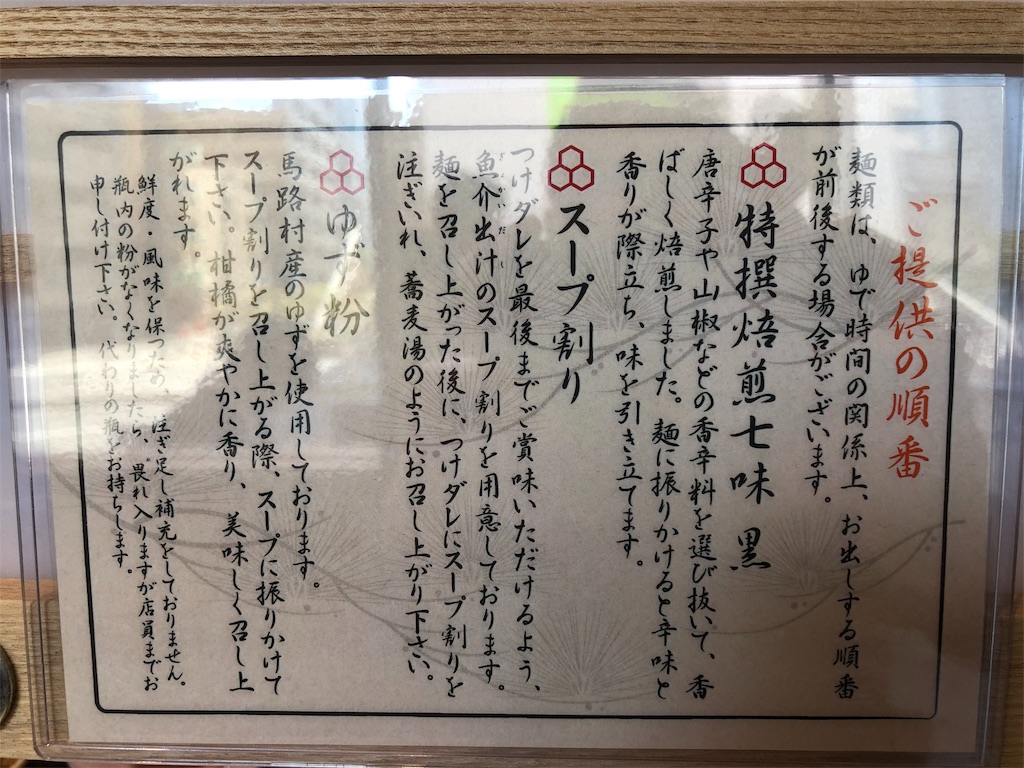 ご提供の順番
麺類は、ゆで時間の関係上、お出しする順番
が前後する場合がございます。
特撰焙煎七味 黒
唐辛子や山椒などの香辛料を選び抜いて、香
ばしく焙煎しました。麺に振りかけると辛味と
香りが際立ち、味を引き立てます。
スープ割り
つけダレを最後までご賞味いただけるよう、
魚介出汁のスープ割りを用意しております。
麺を召し上がった後に、つけダレにスープ割りを
注ぎいれ、蕎麦湯のようにお召し上がり下さい。
ゆず粉
馬路村産のゆずを使用しております。
スープ割りを召し上がる際、スープに振りかけて
下さい。柑橘が爽やかに香り、美味しく召し上
がれます。
鮮度・風味を保つため、注ぎ足し補充をしておりません。
瓶内の粉がなくなりましたら、畏れ入りますが店員までお
申し付け下さい。代わりの瓶をお持ちします。